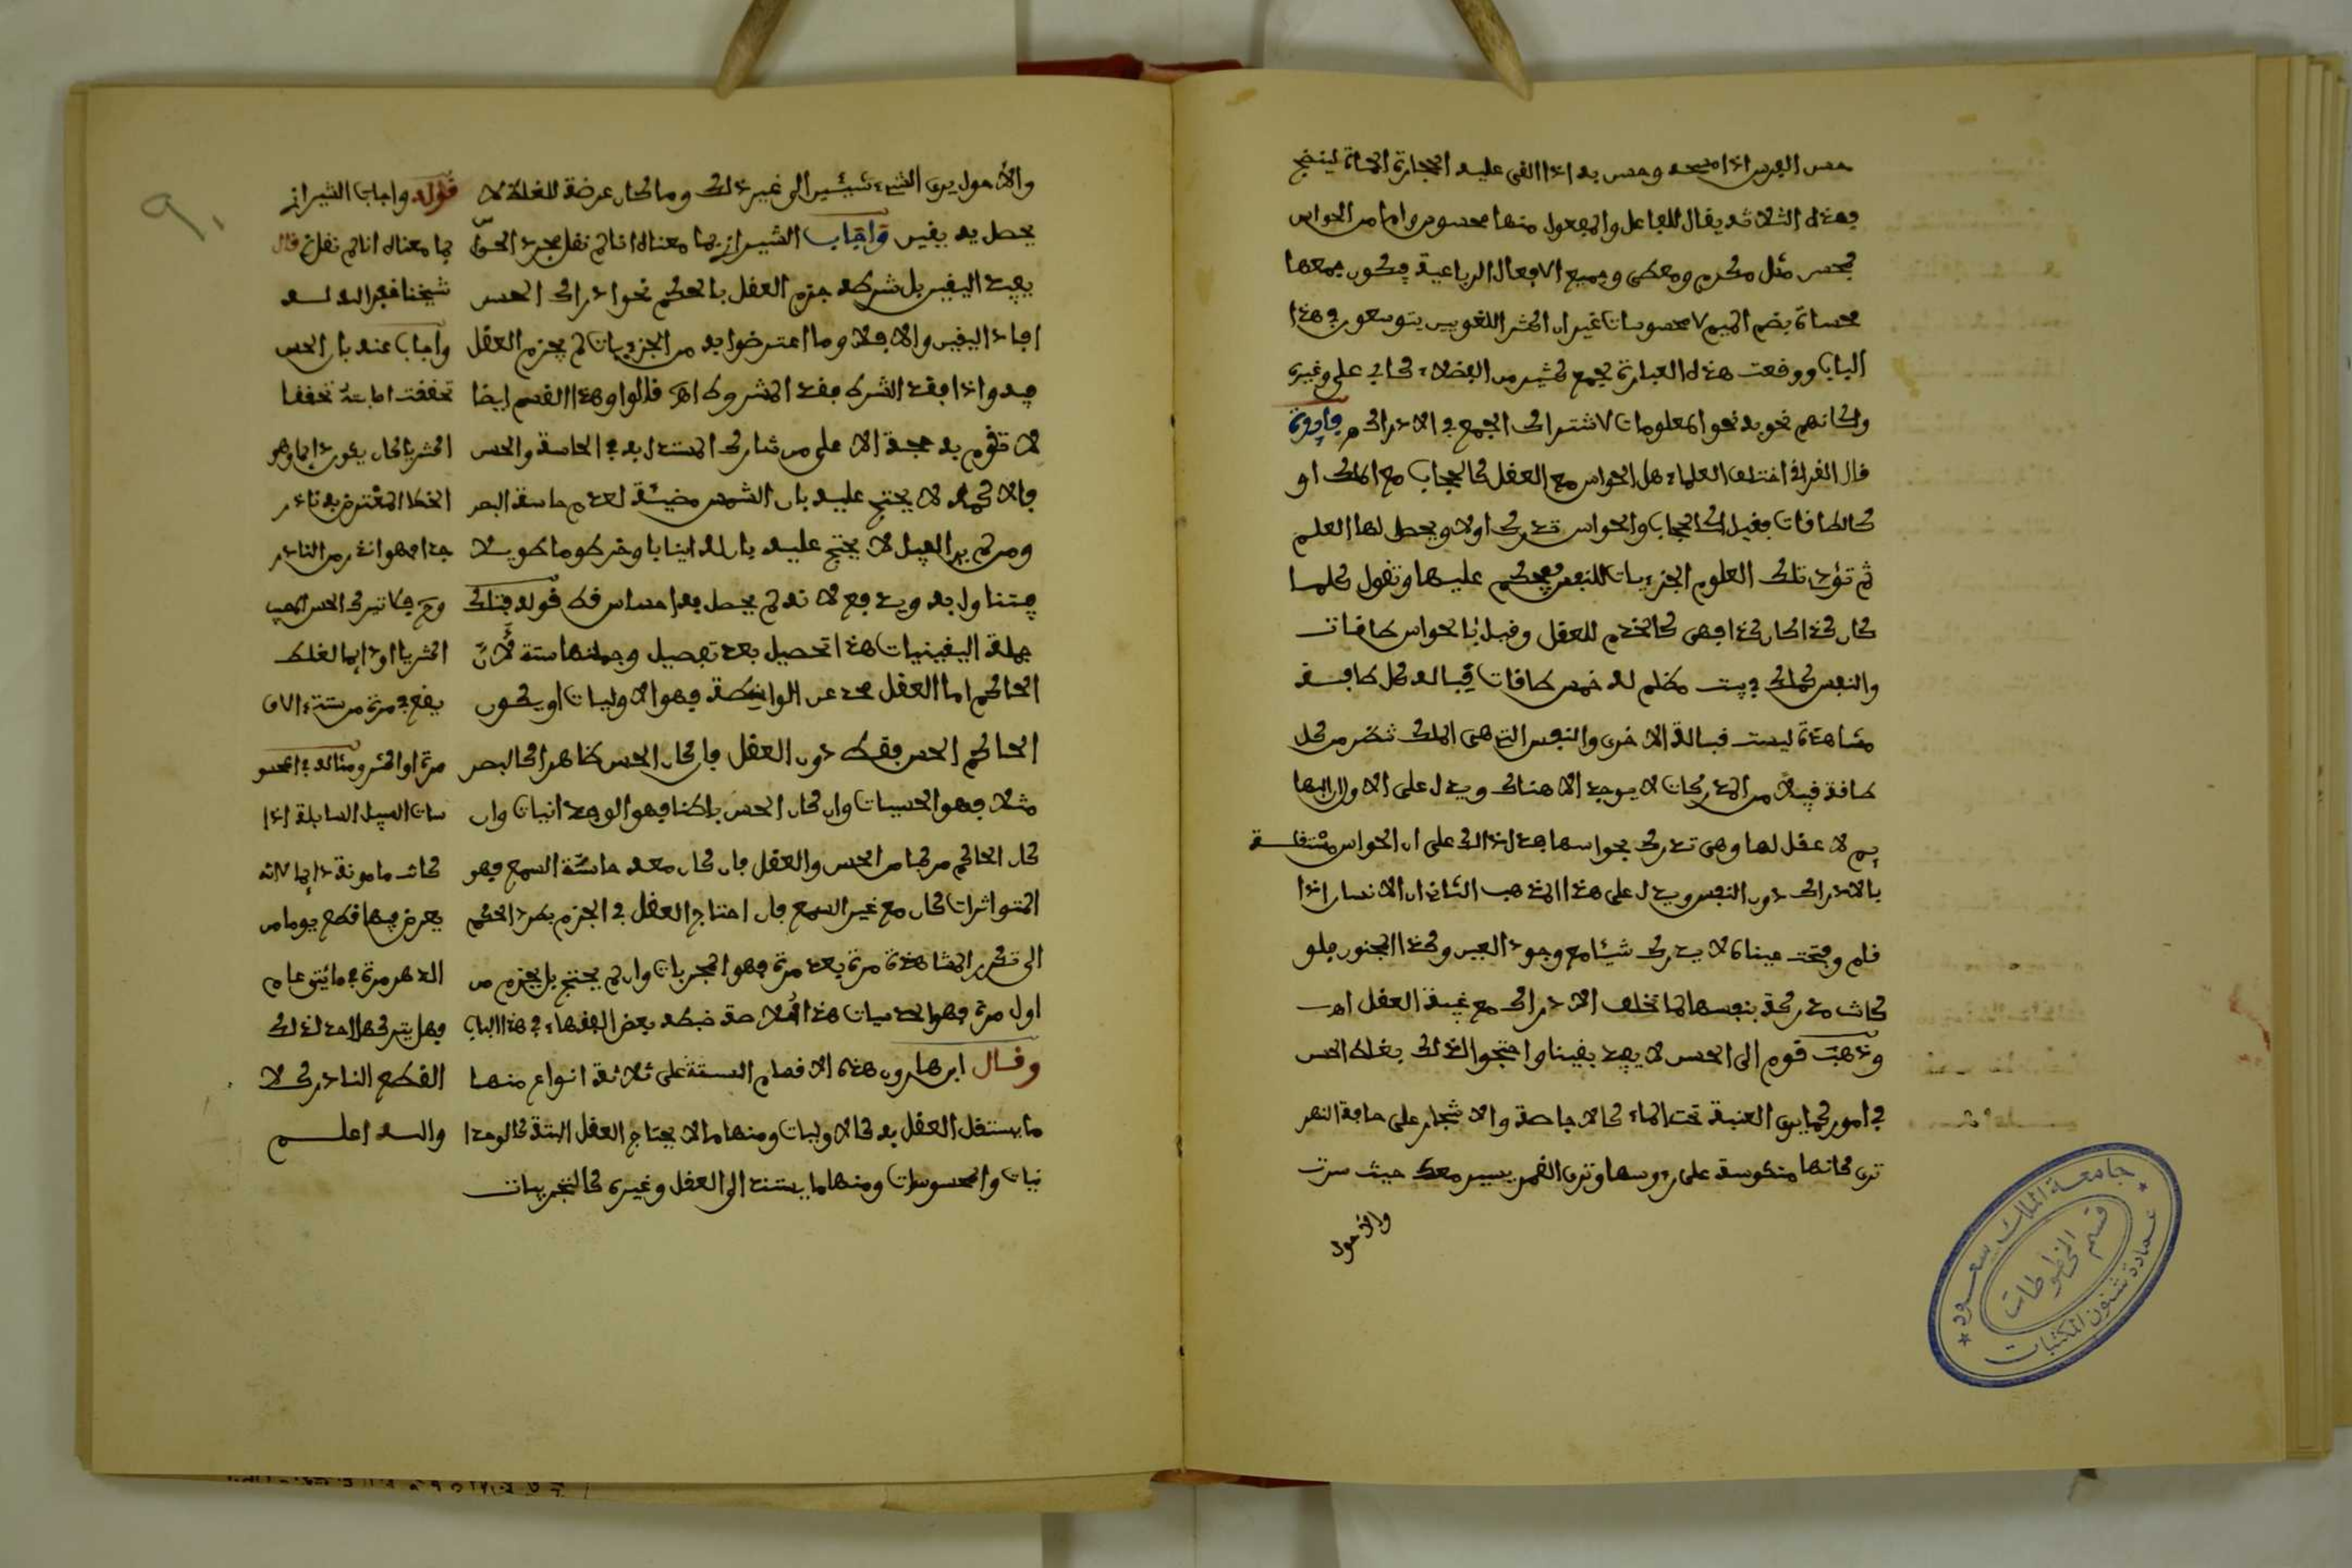 حس الفرس اذا مسحه وحس به اذا القى عليه الحجارة المحماة لينضج
فهذه الثلاثة يقال للفاعل والمفعول منها محسوس واما من الحواس
فمحس مثل مكرم ومعطى وجميع الافعال الرباعية فيكون جمعها
محساة بضم الميم لا محسوسات غير ان اكثر اللغويين يتوسعون في هذا
الباب ووقعت هذه العبارة لجمع كثير من الفضلاء كابي علي وغيره
وكانهم نحو به نحو المعلومات لاشتراك الجمع في الادراك م فايدة
قال القرافي اختلف العلماء هل الحواس مع العقل كالحجاب مع الملك او
كالطاقات فقيل كالحجاب والحواس تدرك اولا ويحصل لها العلم
ثم تؤدي تلك العلوم الجزءيات للنفس فتحكم عليها وتقول كلما
كان كذا كان كذا فهي كالخدم للعقل وقيل بل الحواس طاقات
والنفس كملك في بيت مظلم له خمس طاقات قبالة كل طاقة
مشاهدة ليست قبالة الاخرى والنفس التي هي الملك تنظر من كل
طاقة قبيلا من المدركات لا يوجد الا هناك ويدل على الاول ان البها
يم لا عقل لها وهي تدرك بحواسها فدل ذالك على ان الحواس مستقلة
بالادراك دون النفس ويدل على هذا المذهب الثاني ان الانسان اذا
قام وفتحت عيناه لا يدرك شيئا مع وجود العين وكذا المجنون فلو
كانت مدركة بنفسها لما تخلف الادراك مع غيبة العقل اهـ
وذهب قوم الى الحس لا يفيد يقينا واحتجوا لذلك بغلط الحس
في امور كما يرى العنبة تحت الماء كالاجاصة والاشجار على حافة النهر
ترى كانها منكوسة على رءوسها وترى القمر يسير معك حيث سرت
والاحول
والاحول يرى الشيء شيئين الى غير ذلك وما كان عرضة للغلط لا
يحصل به يقين واجاب الشيرازي بما معناه انا لم نقل مجرد الحواس
يفيد اليقين بل شرطه جزم العقل بالحكم نحو ادراك الحس
افاد اليقين والا فلا وما اعترضوا به من الجزءيات لم يجزم العقل
فيه واذا فقد الشرط فقد المشروط اهـ قالوا وهذا القسم ايضا
لا تقوم به حجة الا على من شارك المستدل به في الحاسة والحس
فالاكمه لا يحتج عليه بان الشمس مضيئة لعدم حاسة البصر
ومن لم ير الفيل لا يحتج عليه بان له انيابا وخرطوما طويلا
فيتناول به ويدفع لانه لم يحصل به احساس قط قوله فتلك
جملة اليقينيات هذا تحصيل بعد تفصيل وجملتها ستة لان
الحاكم اما العقل مجردا عن الواسطة فهو الاوليات او يكون
الحاكم الحس فقط دون العقل فان كان الحس ظاهرا كالبصر
مثلا فهو الحسيات وان كان الحس باطنا فهو الوجدانيات وان
كان الحاكم مركبا من الحس والعقل فان كان معه حاسة السمع فهو
المتواترات كان مع غير السمع فان احتاج العقل في الجزم بطرد الحكم
الى تكرر المشاهدة مرة بعد مرة فهو المجربات وان لم يحتج بل يجزم من
اول مرة فهو الحدسيات هذا خلاصة ضبطه بعض الفقهاء في هذا الباب
وقال ابن هارون هذه الاقسام الستة على ثلاثة انواع منها
ما يستقل العقل به كالاوليات ومنها ما لا يحتاج العقل البتة كالوجدا
نيات والمحسوسات ومنها ما يستند الى العقل وغيره كالتجربيات
قوله واجاب الشيرازي
بما معناه انا لم نقل الخ قال
شيخنا فجر الله له
واجاب عنه بان الحس
تحققت اصابته تحققا
اكثريا كان يكون دايما وهو
الخطا المعترض به نادر
جدا فهو اندر من النادر
وح فلا نترك الحس المصيب
اكثريا او دايما لغلط
يقع في مرة من ستة الاف
مرة او اكثر ومثاله في المحسو
سات السبل السابلة اذا
كانت مامونة دايما لانه
يعرض فيها قطع يوما من
الدهر مرة في مائتي عام
فهل يتركها احد لذلك
القطع النادر كلا
والله اعلم
٩٠
جامعة الملك سعود
عمادة شئون المكتبات
قسم المخطوطات